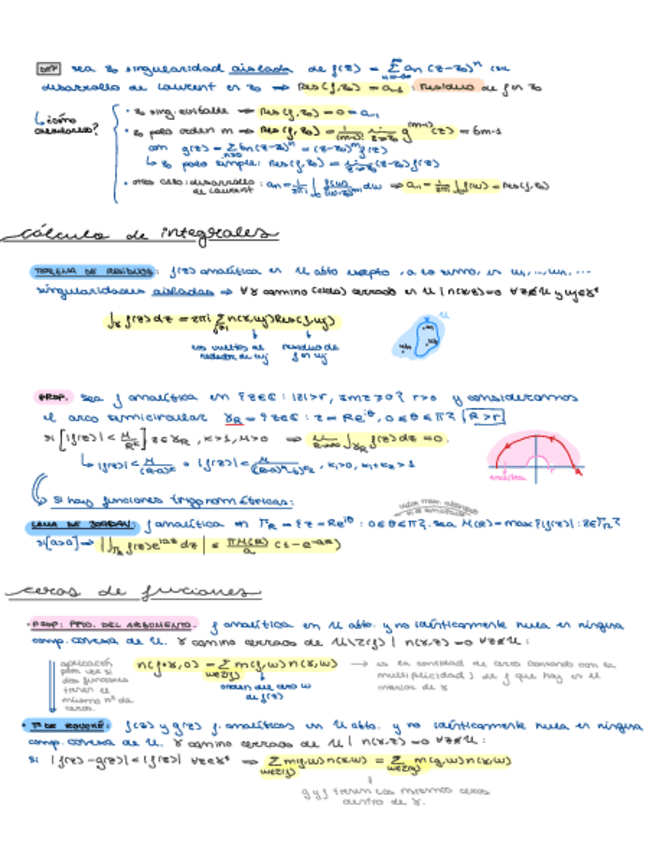 DEF sea z₀ singularidad aislada de f(z) = Σ aₙ (z-z₀)ⁿ su
desarrollo de Laurent en z₀ ⟹ Res(f, z₀) = a₋₁ : residuo de f en z₀
↳ ¿cómo calcularlos?
· z₀ sing. evitable ⟹ Res(f, z₀) = 0 = a₋₁
· z₀ polo orden m ⟹ Res(f, z₀) = 1/(m-1)! lim z→z₀ g^(m-1) (z) = bm-1
con g(z) = Σ bn(z-z₀)ⁿ = (z-z₀)ᵐ f(z)
↳ z₀ polo simple: Res(f, z₀) = lim z→z₀ (z-z₀) f(z)
· otro caso: desarrollo de Laurent : an = 1/2πi ∫ f(w)/(w-z₀)ⁿ⁺¹ dw ⟹ a₋₁ = 1/2πi ∫ f(w) = Res(f, z₀)
cálculo de integrales
TEOREMA DE RESIDUOS: f(z) analítica en U abto excepto, a lo sumo, en w₁, ..., wn, ...
singularidades aisladas ⟹ ∀γ camino cerrado en U | n(γ,z)=0 ∀z∉U y wj∉γ*
∫γ f(z) dz = 2πi Σ n(γ,wj) Res(f, wj)
las vueltas al rededor de wj
residuo de f en wj
PROP. sea f analítica en {z∈ℂ : |z|>r, Imz>0} r>0 y consideramos
el arco semicircular γR = {z∈ℂ : z = Re^iθ, 0≤θ≤π} R>r
si [|f(z)| < M/R^k] z∈γR, k>1, M>0 ⟹ lim R→∞ ∫γR f(z) dz = 0.
analítica
si hay funciones trigonométricas:
valor max. alcanzado
LEMA DE JORDAN: f analítica en ΓR = {z = Re^iθ : 0≤θ≤π}. sea M(R) = max{|f(z)| : z∈ΓR}
si [a>0] ⟹ |∫ΓR f(z) e^iaz dz| ≤ πM(R)/a (1 - e^-aR)
ceros de funciones
· PROP: PPIO. DEL ARGUMENTO. f analítica en U abto. y no idénticamente nula en ninguna
comp. conexa de U. γ camino cerrado de U\Z(f) | n(γ,z) = 0 ∀z∉U :
aplicación para ver si dos funciones tienen el mismo nº de ceros.
n(f∘γ, 0) = Σ m(f,w) n(γ,w)
w∈Z(f)
orden del cero w de f(z)
→ es la cantidad de ceros (contando con la multiplicidad) de f que hay en el interior de γ
· Tª DE ROUCHÉ: f(z) y g(z) f. analíticas en U abto. y no idénticamente nula en ninguna
comp. conexa de U. γ camino cerrado de U | n(γ,z) = 0 ∀z∉U :
si |f(z) - g(z)| < |f(z)| ∀z∈γ* ⟹ Σ m(f,w) n(γ,w) = Σ m(g,w) n(γ,w)
g y f tienen los mismos ceros
dentro de γ.